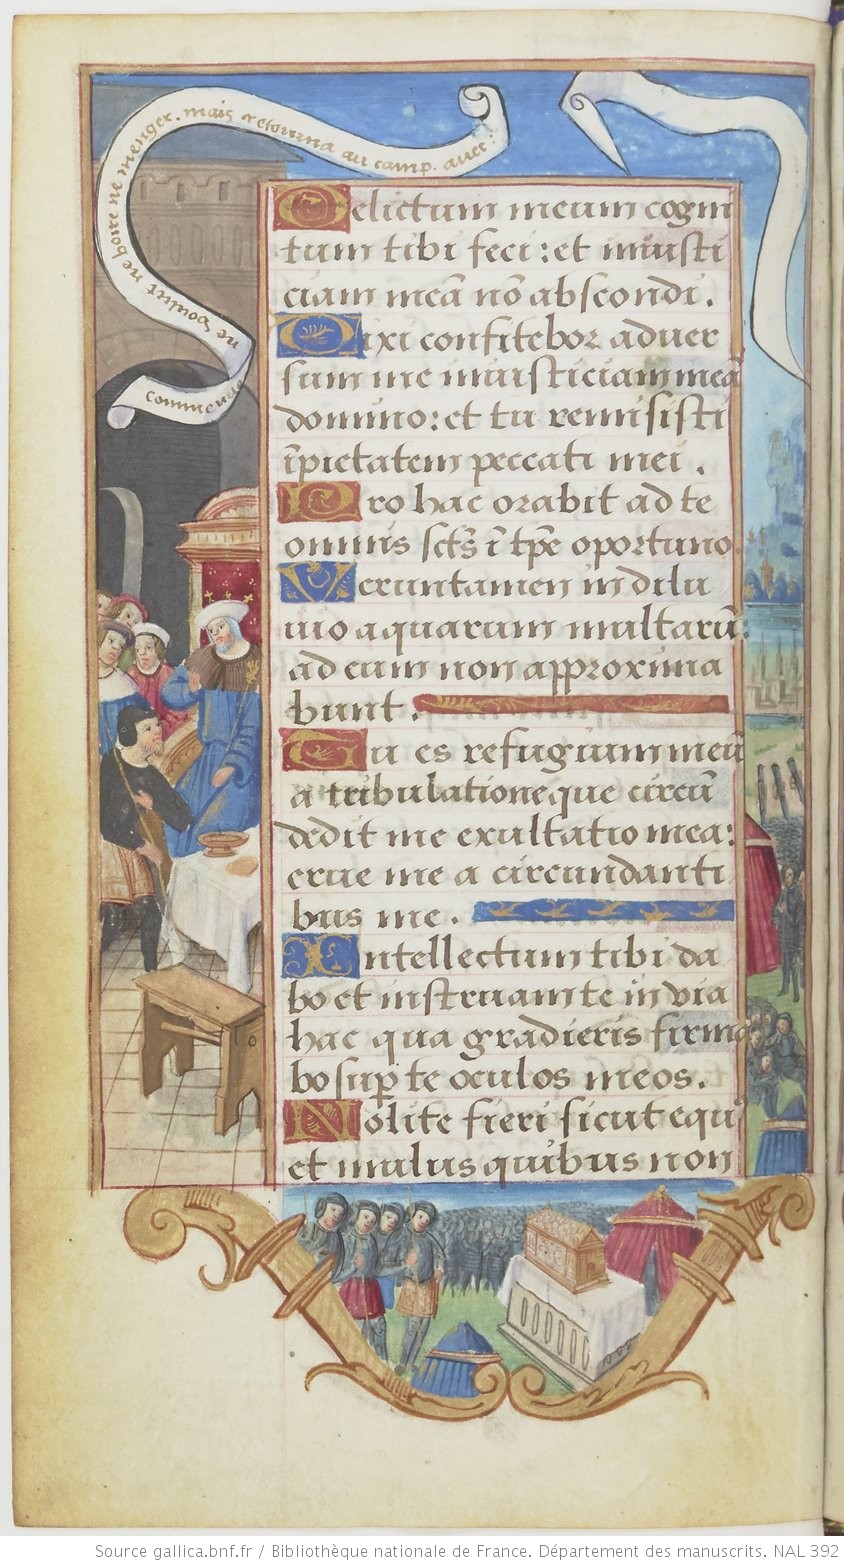 commende
ne voulut ne boire ne menger. mais retourna au camp. avec.
Delictum meum cogni
tum tibi feci: et iniusti
ciam meā nō abscondi.
Dixi confitebor aduer
sum me iniusticiam meā
domino: et tu remisisti
īpietatem peccati mei.
Pro hac orabit ad te
omnis sct̄s ī tp̄e oportuno.
Veruntamen in dilu
uio aquarum multarū:
ad eum non approxima
bunt.
Tu es refugium meū
a tribulatione que circū
dedit me exultatio mea:
erue me a circundanti
bus me.
Intellectum tibi da
bo et instruam te in via
hac qua gradieris firma
bo sup̱ te oculos meos.
Nolite fieri sicut equ9
et mulus quibus non
Source gallica.bnf.fr / Bibliothèque nationale de France. Département des manuscrits. NAL 392